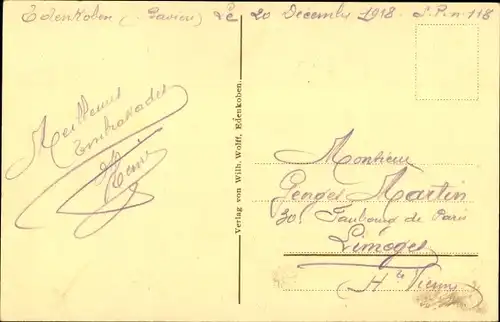 Edenkoben (Bavière) Le 20 Decembre 1918. S.P.N. 118
Meilleures
Embrassades
Verlag von Wilh. Wolff, Edenkoben.
Monsieur
Martin
30, Faubourg de Paris
Limoges
Hte Vienne